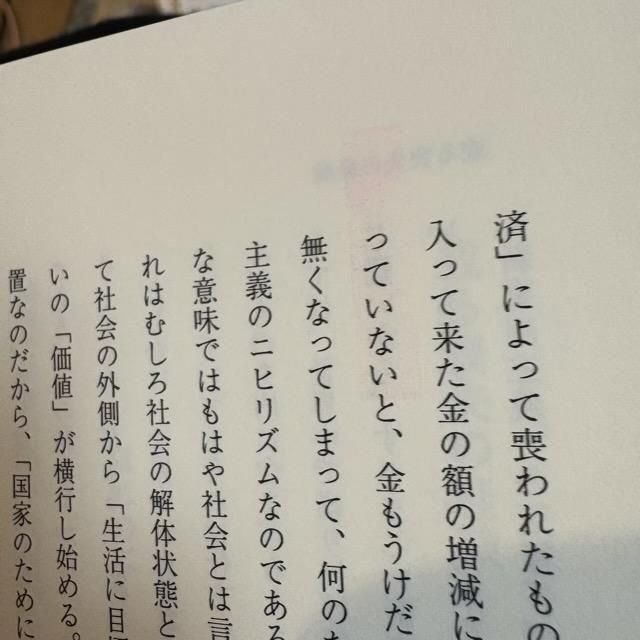 済」によって喪われたもの
入って来た金の額の増減に
っていないと、金もうけだ
無くなってしまって、何の
主義のニヒリズムなのである
な意味ではもはや社会とは言
れはむしろ社会の解体状態と
て社会の外側から「生活に目
いの「価値」が横行し始める。
置なのだから、「国家のために